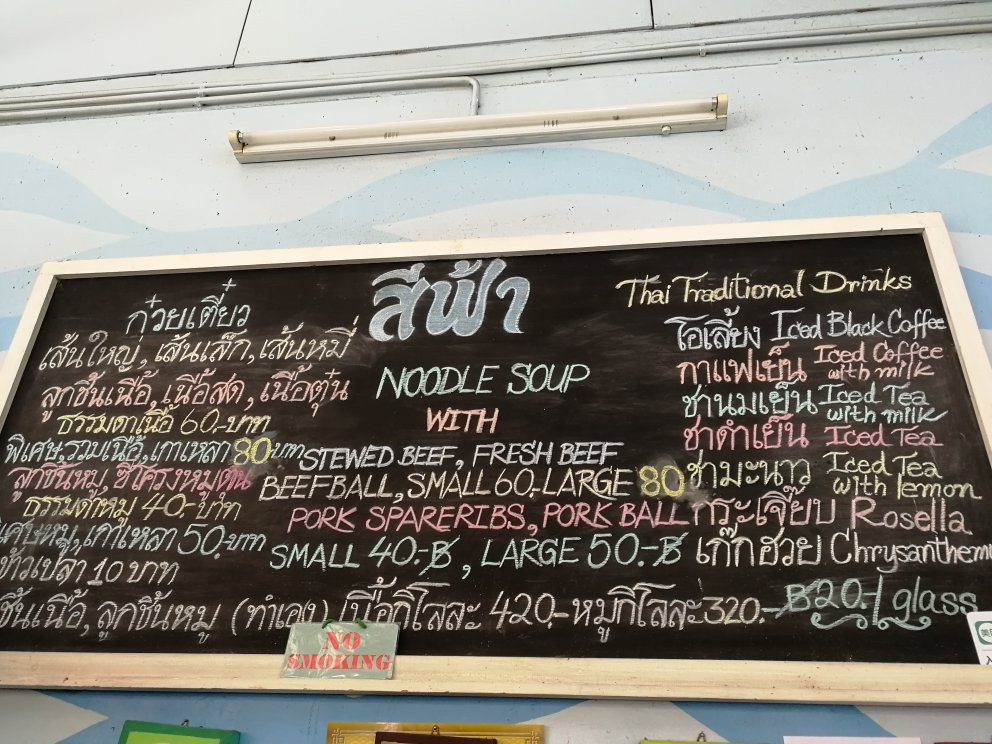 สีฟ้า
ก๋วยเตี๋ยว
เส้นใหญ่, เส้นเล็ก, เส้นหมี่
ลูกชิ้นเนื้อ, เนื้อสด, เนื้อตุ๋น
ธรรมดาเนื้อ 60.-บาท
พิเศษ, รวมเนื้อ, เกาเหลา 80 บาท
ลูกชิ้นหมู, ซี่โครงหมูตุ๋น
ธรรมดาหมู 40.-บาท
เศษหมู, เกาเหลา 50.บาท
ข้าวเปล่า 10 บาท
ชิ้นเนื้อ, ลูกชิ้นหมู (ทำเอง) เนื้อกิโลละ 420.-หมูกิโลละ 320.-
NOODLE SOUP
WITH
STEWED BEEF, FRESH BEEF
BEEFBALL, SMALL 60.-LARGE 80
PORK SPARERIBS, PORK BALL
SMALL 40.-฿, LARGE 50.-฿
Thai Traditional Drinks
โอเลี้ยง Iced Black Coffee
กาแฟเย็น Iced Coffee with milk
ชานมเย็น Iced Tea with milk
ชาดำเย็น Iced Tea
ชามะนาว Iced Tea with lemon
กระเจี๊ยบ Rosella
เก๊กฮวย Chrysanthemu
฿20.-/glass
NO
SMOKING